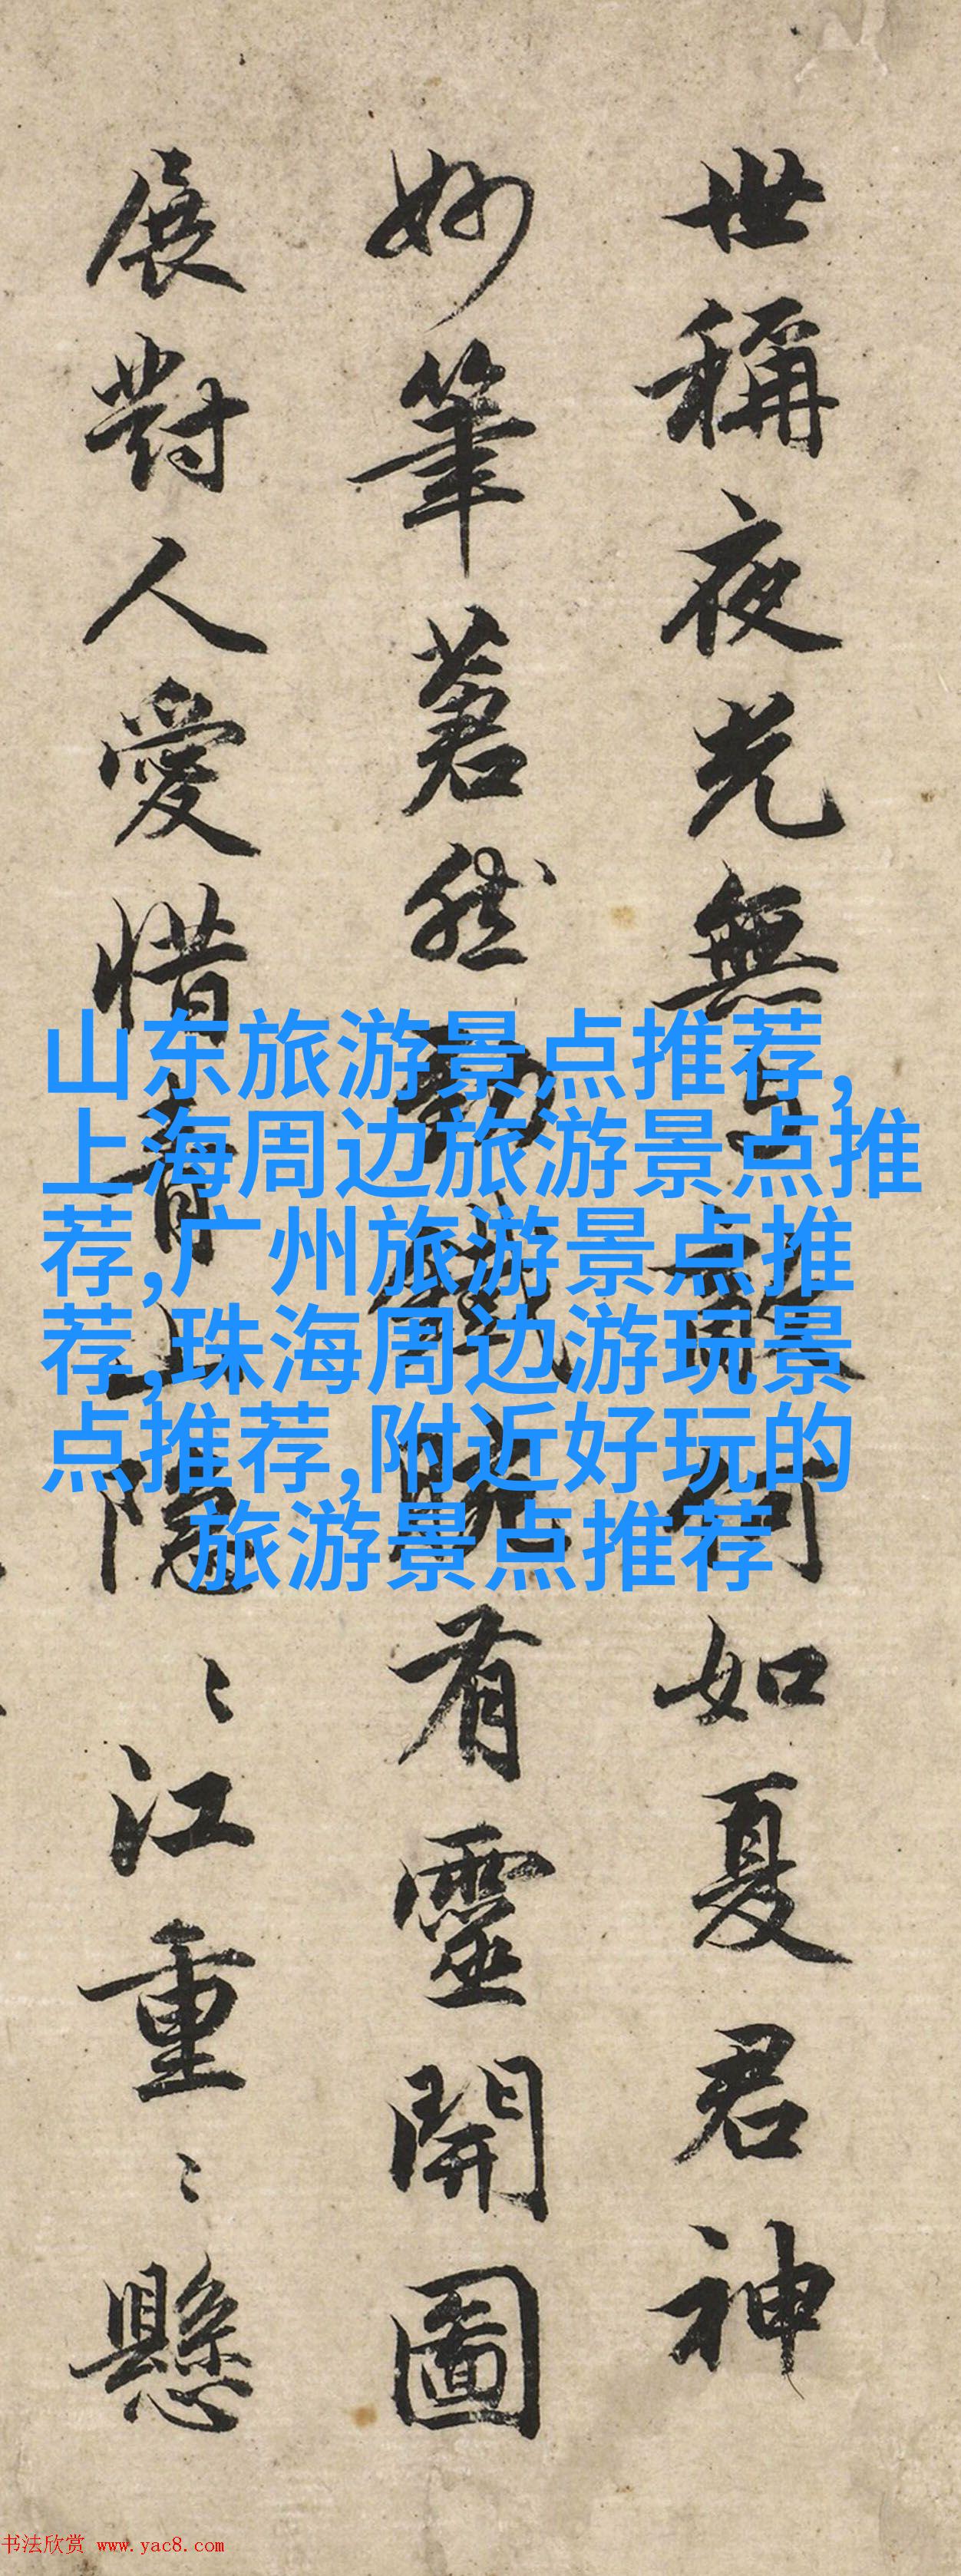 世稱夜光無与何如夏君神
妙筆然有靈開圖
展對人愛惜青山隐〻江重〻懸
山东旅游景点推荐,
上海周边旅游景点推
荐,广州旅游景点推
荐,珠海周边游玩景
点推荐,附近好玩的
旅游景点推荐
书法欣赏 www.yac8.com